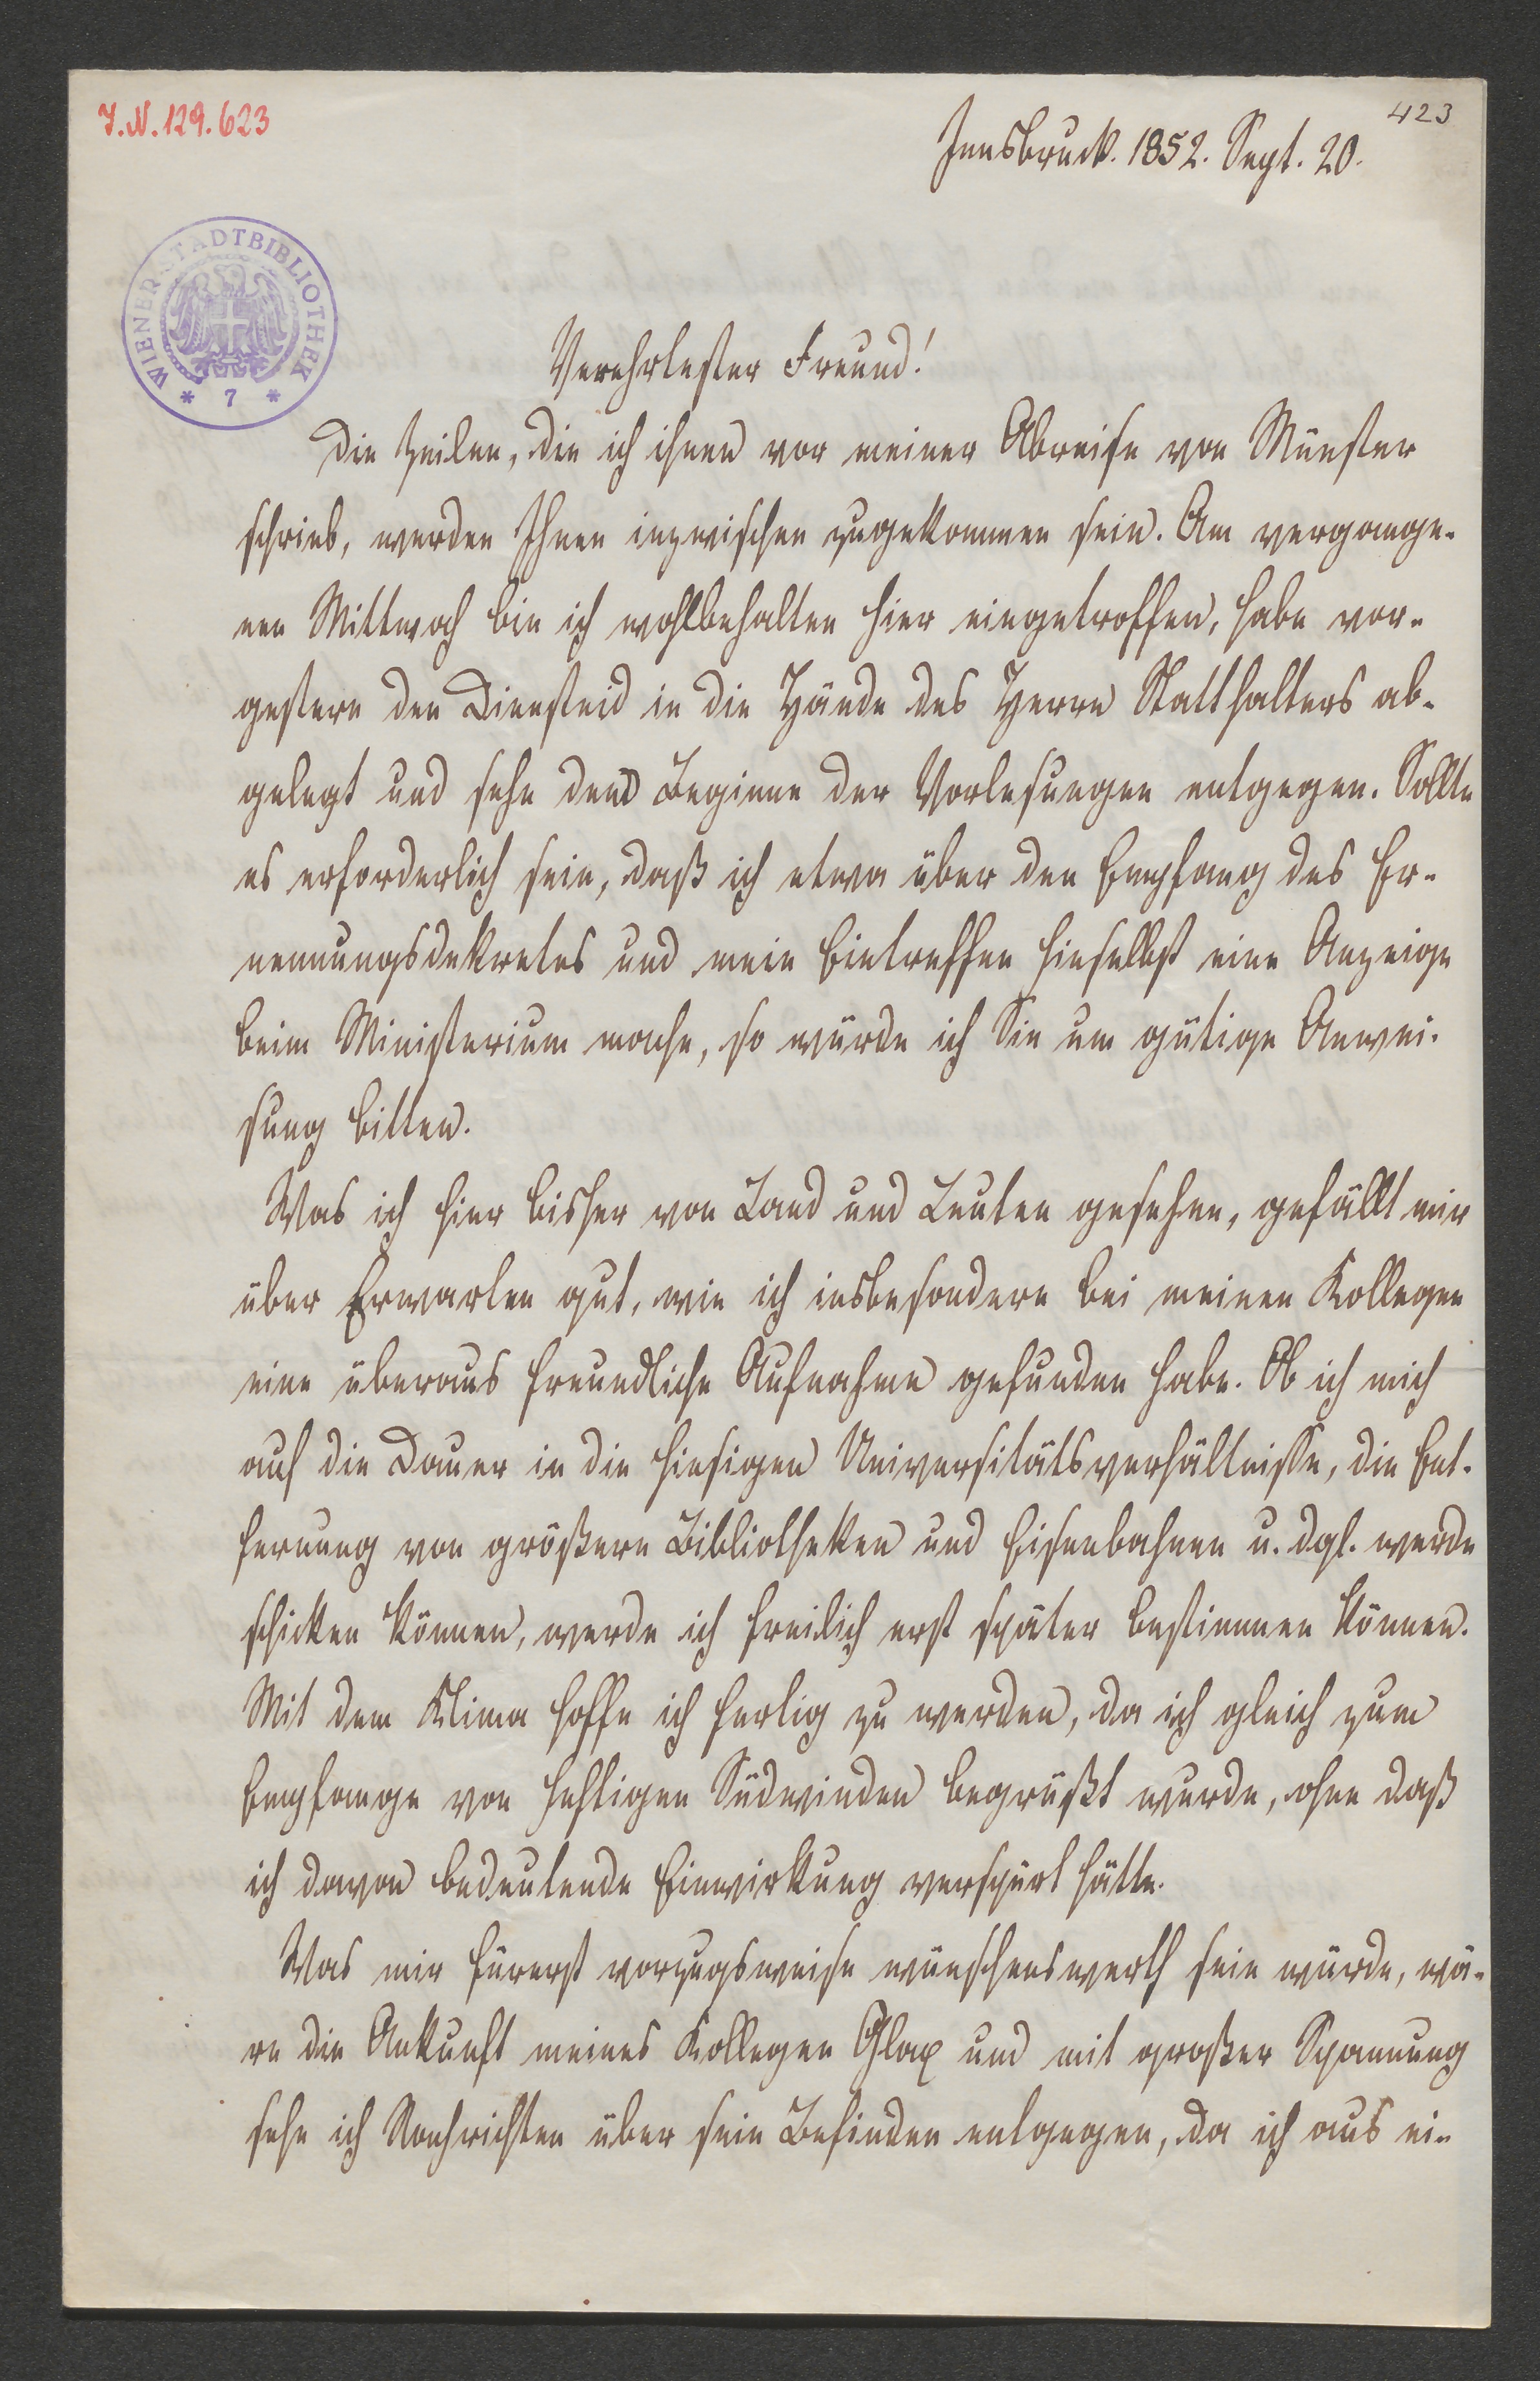 I.N. 129.623
423
Innsbruck. 1852. Sept. 20.
WIENER STADTBIBLIOTHEK
* 7 *
Verehrtester Freund!
Die Zeilen, die ich ihnen vor meiner Abreise von Münster
schrieb, werden Ihnen inzwischen zugekommen sein. Am vergange-
nen Mittwoch bin ich wohlbehalten hier eingetroffen, habe vor-
gestern den Diensteid in die Hände des Herrn Statthalters ab-
gelegt und sehe dem Beginne der Vorlesungen entgegen. Sollte
es erforderlich sein, daß ich etwa über den Empfang des Er-
nennungsdekretes und mein Eintreffen hieselbst eine Anzeige
beim Ministerium mache, so würde ich Sie um gütige Anwei-
sung bitten.
Was ich hier bisher von Land und Leuten gesehen, gefällt mir
über Erwarten gut, wie ich insbesondere bei meinen Kollegen
eine überaus freundliche Aufnahme gefunden habe. Ob ich mich
auf die Dauer in die hiesigen Universitätsverhältnisse, die Ent-
fernung von größern Bibliotheken und Eisenbahnen u. dgl. werde
schicken können, werde ich freilich erst später bestimmen können.
Mit dem Klima hoffe ich fertig zu werden, da ich gleich zum
Empfange von heftigen Südwinden begrüßt wurde, ohne daß
ich davon bedeutende Einwirkung verspürt hätte.
Was mir fürerst vorzugsweise wünschenswerth sein würde, wä-
re die Ankunft meines Kollegen Glax und mit großer Spannung
sehe ich Nachrichten über sein Befinden entgegen, da ich aus ei-